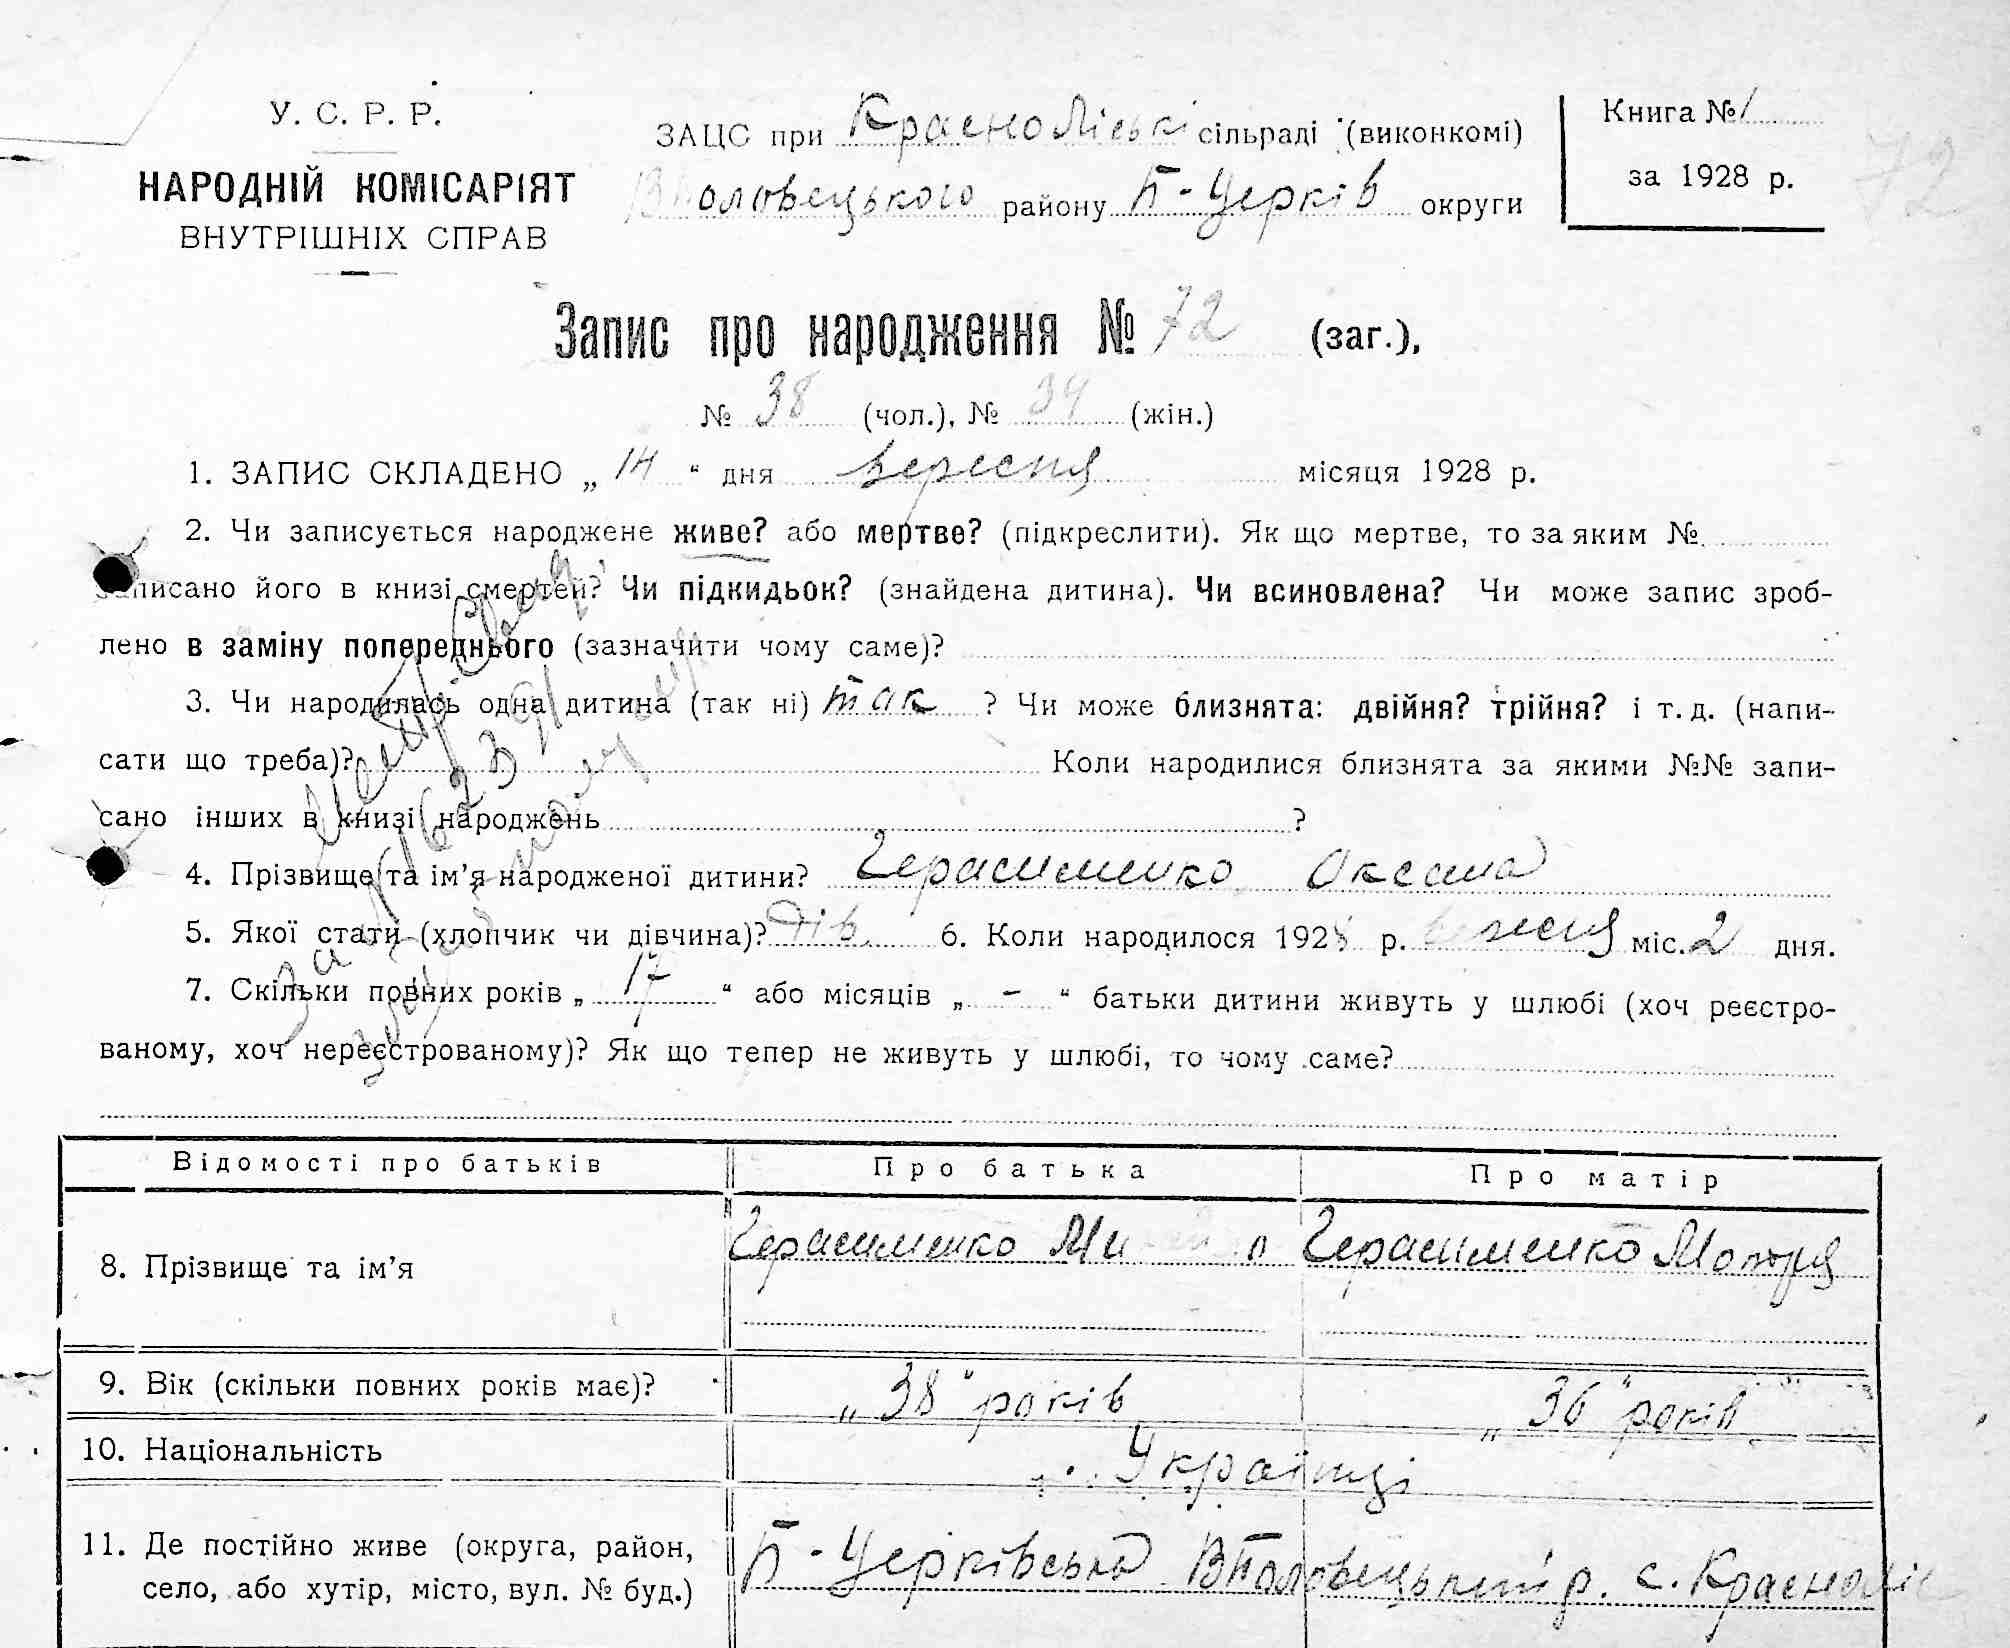 У. С. Р. Р.
НАРОДНІЙ КОМІСАРІЯТ
ВНУТРІШНІХ СПРАВ
ЗАЦС при Красноліські сільраді (виконкомі)
ВПоловецького району Б-Церків округи
Книга № 1
за 1928 р.
72
Запис про народження № 72 (заг.),
№ 38 (чол.), № 34 (жін.)
1. ЗАПИС СКЛАДЕНО „ 14 “ дня вересня місяця 1928 р.
2. Чи записується народжене живе? або мертве? (підкреслити). Як що мертве, то за яким №
записано його в книзі смертей? Чи підкидьок? (знайдена дитина). Чи всиновлена? Чи може запис зроб-
лено в заміну попереднього (зазначити чому саме)?
3. Чи народилась одна дитина (так ні) так ? Чи може близнята: двійня? трійня? і т. д. (напи-
сати що треба)? Коли народилися близнята за якими №№ запи-
сано інших в книзі народжень ?
4. Прізвище та ім’я народженої дитини? Герасименко Оксана
5. Якої стати (хлопчик чи дівчина)? дів. 6. Коли народилося 1928 р. вересня міс. 2 дня.
7. Скільки повних років „ 17 “ або місяців „ - “ батьки дитини живуть у шлюбі (хоч реєстро-
ваному, хоч нереєстрованому)? Як що тепер не живуть у шлюбі, то чому саме?
Відомості про батьків Про батька Про матір
8. Прізвище та ім’я Герасименко Герасименко Мотря
9. Вік (скільки повних років має)? „38“ років „36“ років
10. Національність Українці
11. Де постійно живе (округа, район,
село, або хутір, місто, вул. № буд.) Б-Церківська ВПоловецький р. с. Красноліс